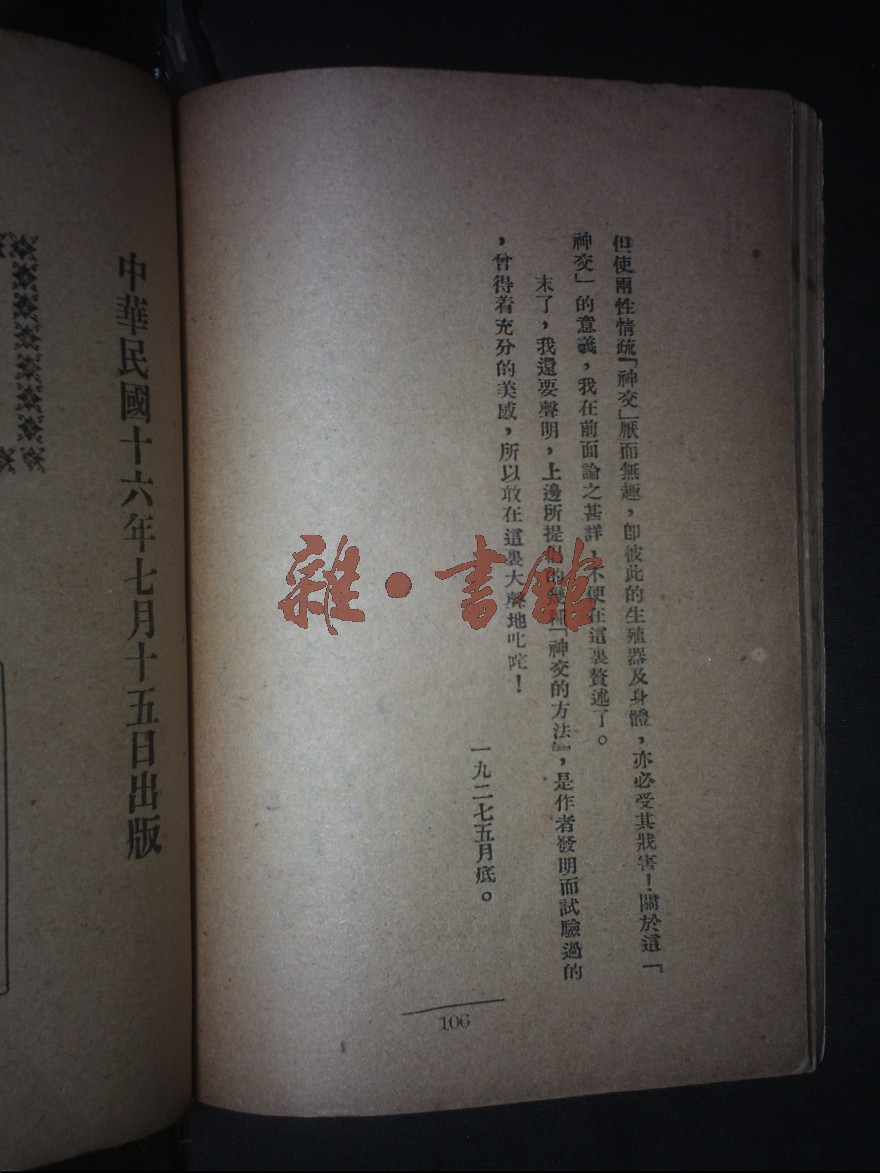 但使兩性情疏「神交」厭而無趣，卽彼此的生殖器及身體，亦必受其戕害！關於這「
神交」的意義，我在前面論之甚詳，不便在這裏贅述了。
末了，我還要聲明，上邊所提的「神交的方法」，是作者發明而試驗過的
，曾得着充分的美感，所以敢在這裏大聲地叱咤！
一九二七五月底。
106
中華民國十六年七月十五日出版
雜·書館